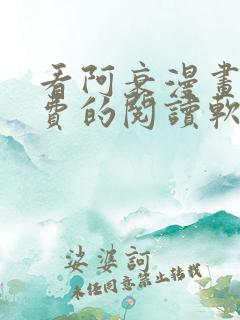 看阿衰漫畫
費的閱讀軟
娑婆訶
未經同意禁止轉載